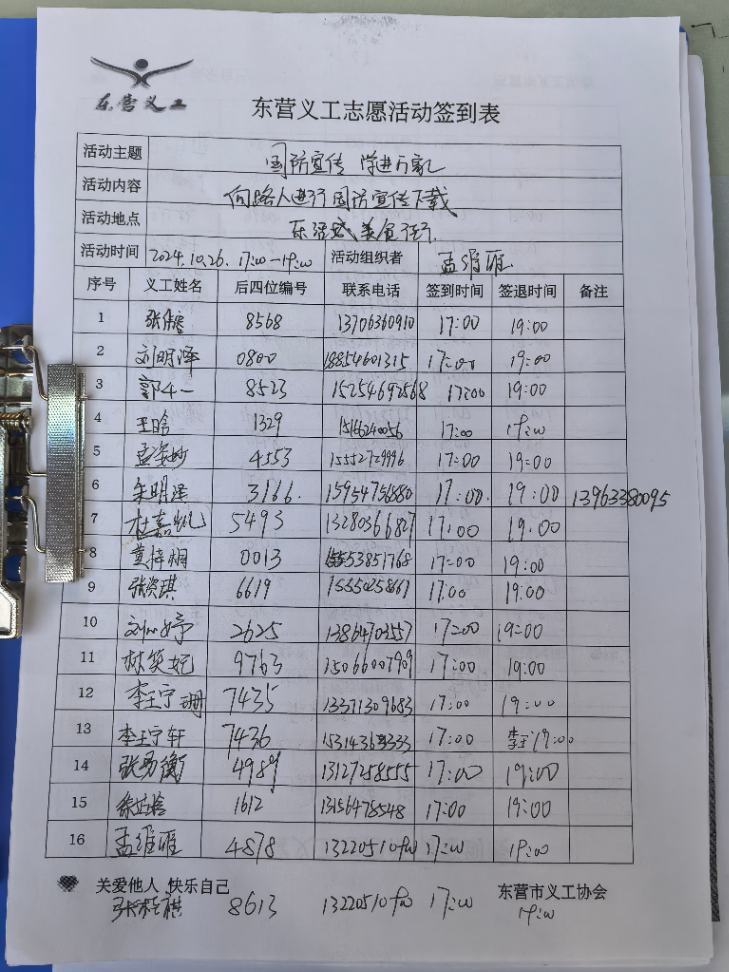 东营义工
东营义工志愿活动签到表
活动主题 国防宣传 学进万家
活动内容 向路人进行国防宣传下载
活动地点 美食街
活动时间 2024.10.26. 17:00-19:00 活动组织者 孟维雁
序号 义工姓名 后四位编号 联系电话 签到时间 签退时间 备注
1 8568 13706360910 17:00 19:00
2 刘明泽 0800 18854601315 17:00 19:00
3 郭一一 8523 15254692568 17:00 19:00
4 王晗 1329 15166240056 17:00 19:00
5 孟姿妙 4553 15552729996 17:00 19:00
6 宋明泽 3166. 15954756880 17:00. 19:00 13963380095
7 杜嘉凯 5493 13280366827 17:00 19.00
8 董梓桐 0013 17:00 19:00
9 张资琪 6619 15550258661 17:00 19:00
10 2625 13864703557 17:00 19:00
11 林笑妃 9763 15066007909 17:00 19:00
12 李王宁珊 7435 13371309683 17:00 19:00
13 李王宁轩 7436 17:00 19:00
14 张勇衡 4989 13127258555 17:00 19:00
15 1612 13156478548 17:00 19:00
16 孟维雁 4878 17:00 19:00
关爱他人 快乐自己 东营市义工协会
8613 17:00 19:00